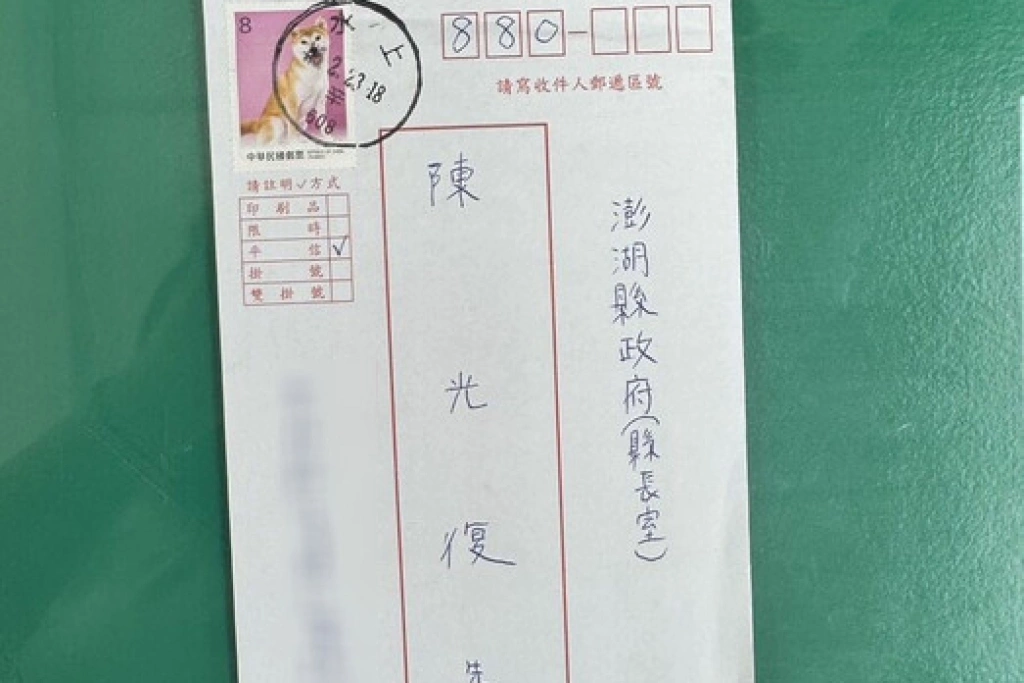 8
水上
2.23.18
608
中華民國郵票
880
請寫收件人郵遞區號
請註明✓方式
印刷品
限時
平信 ✓
掛號
雙掛號
澎湖縣政府(縣長室)
陳光復